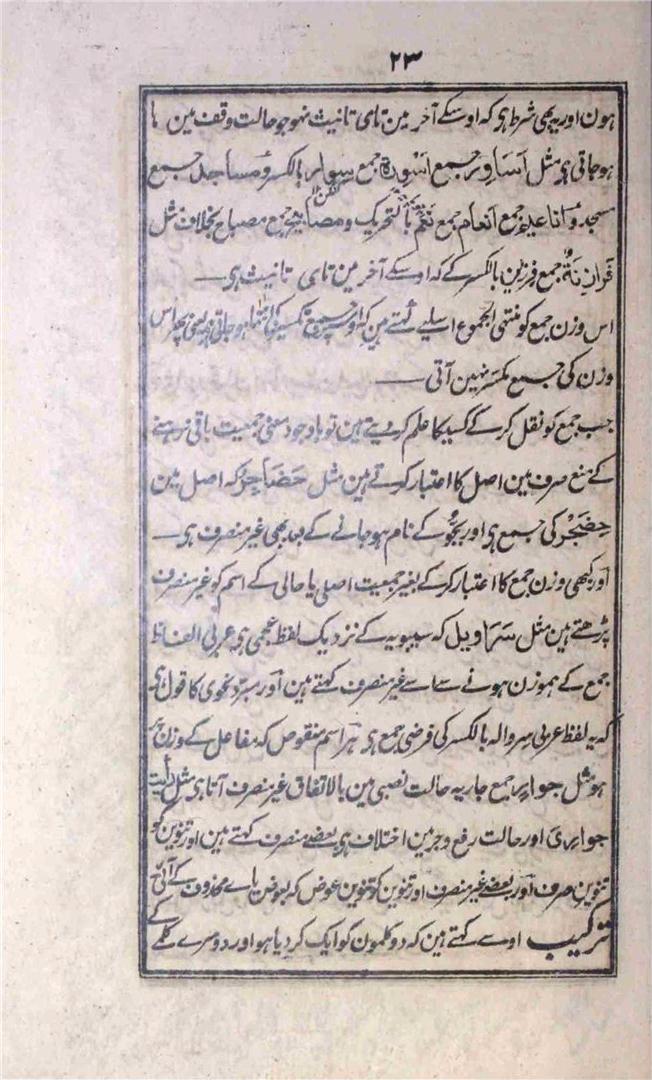 ۲۳
ہون اور یہ بھی شرط ہی کہ اوسکے آخر مین تای تانیث نہو جو حالت وقف مین ہا
ہوجاتی ہی مثل اَسَاوِر جمع اَسْوِرة جمع سوار بالکسر و مساجد جمع
مسجد و اناعیم جمع انعام جمع نَعَم بالتحریک و مصابیح جمع مصباح بخلاف مثل
فَرازِنَة جمع فرزین بالکسر کے کہ اوسکے آخر مین تای تانیث ہی —
اس وزن جمع کو منتہی الجموع اسلیے کہتے ہین کہ اوسپر جمع تکسیر کی انتہا ہوجاتی ہی یعنی پھر اس
وزن کی جمع مکسر نہین آتی —
جب جمع کو نقل کر کے کسیکا علم کردیتے ہین تو باوجود معنی جمعیت باقی نرہنے
کے منع صرف مین اصل کا اعتبار کرتے ہین مثل حَضَاجِر کہ اصل مین
حِضَجْر کی جمع ہی اور بجّو کے نام ہوجانے کے بعد بھی غیر منصرف ہی —
اور کبھی وزن جمع کا اعتبار کرکے بغیر جمعیت اصلی یا حالی کے اسم کو غیر منصرف
پڑھتے ہین مثل سَرَاویل کہ سیبویہ کے نزدیک لفظ عجمی ہی عربی الفاظ
جمع کے ہموزن ہونے سے اسے غیر منصرف کہتے ہین اور مبرّد نحوی کا قول ہی
کہ یہ لفظ عربی سروالہ بالکسر کی فرضی جمع ہی ہر اسم منقوص کہ مفاعل کے وزن پر
ہو مثل جوارٍ جمع جاریہ حالت نصبی مین بالاتفاق غیر منصرف آتا ہی مثل رأیت
جواریَ اور حالت رفع و جر مین اختلاف ہی بعضے منصرف کہتے ہین اور تنوین کو
تنوین صرف اور بعضے غیر منصرف اور تنوین کو تنوین عوض کہ بعوض یاے محذوف کے آئی
ترکیب اوسے کہتے ہین کہ دو کلمون کو ایک کردیا ہو اور دوسرے کلمے کے